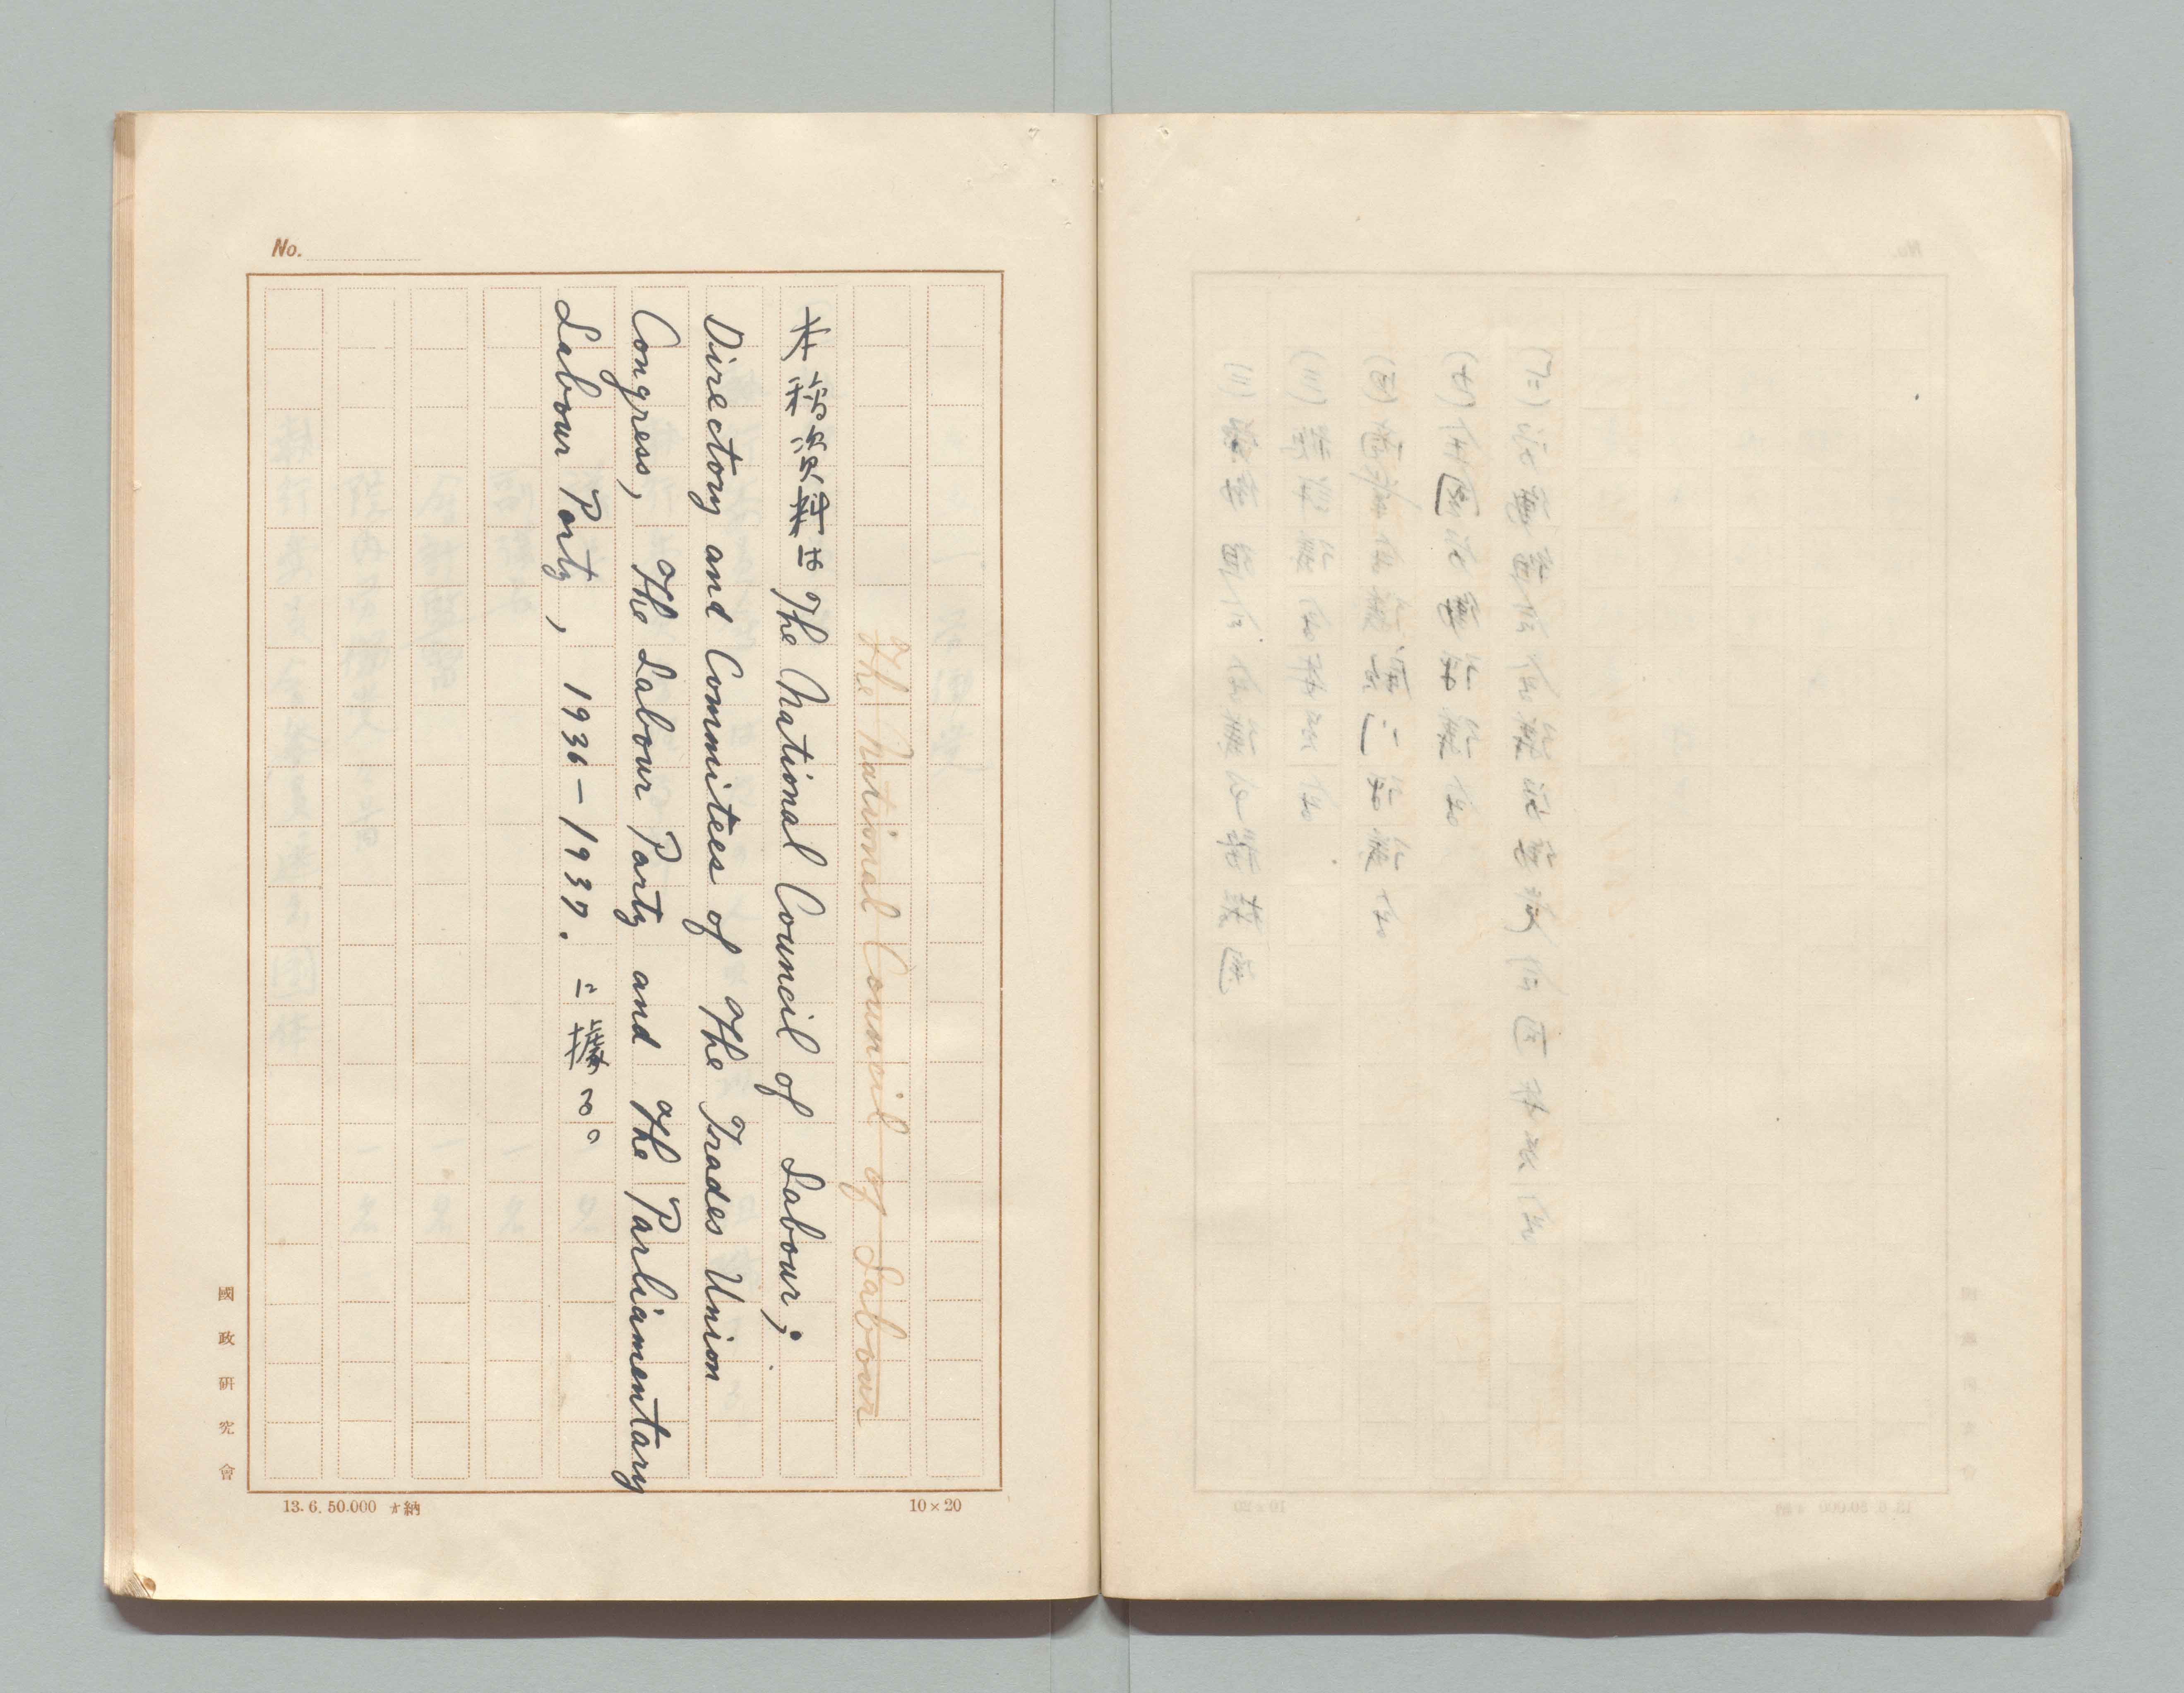 No.
The National Council of Labour
本稿資料は The National Council of Labour;
Directory and Commitees of the Trades Union
Congress, the Labour Party and the Parliamentary
Labour Party, 1936-1937. に據る。
國政研究會
13.6.50.000 オ納
10×20